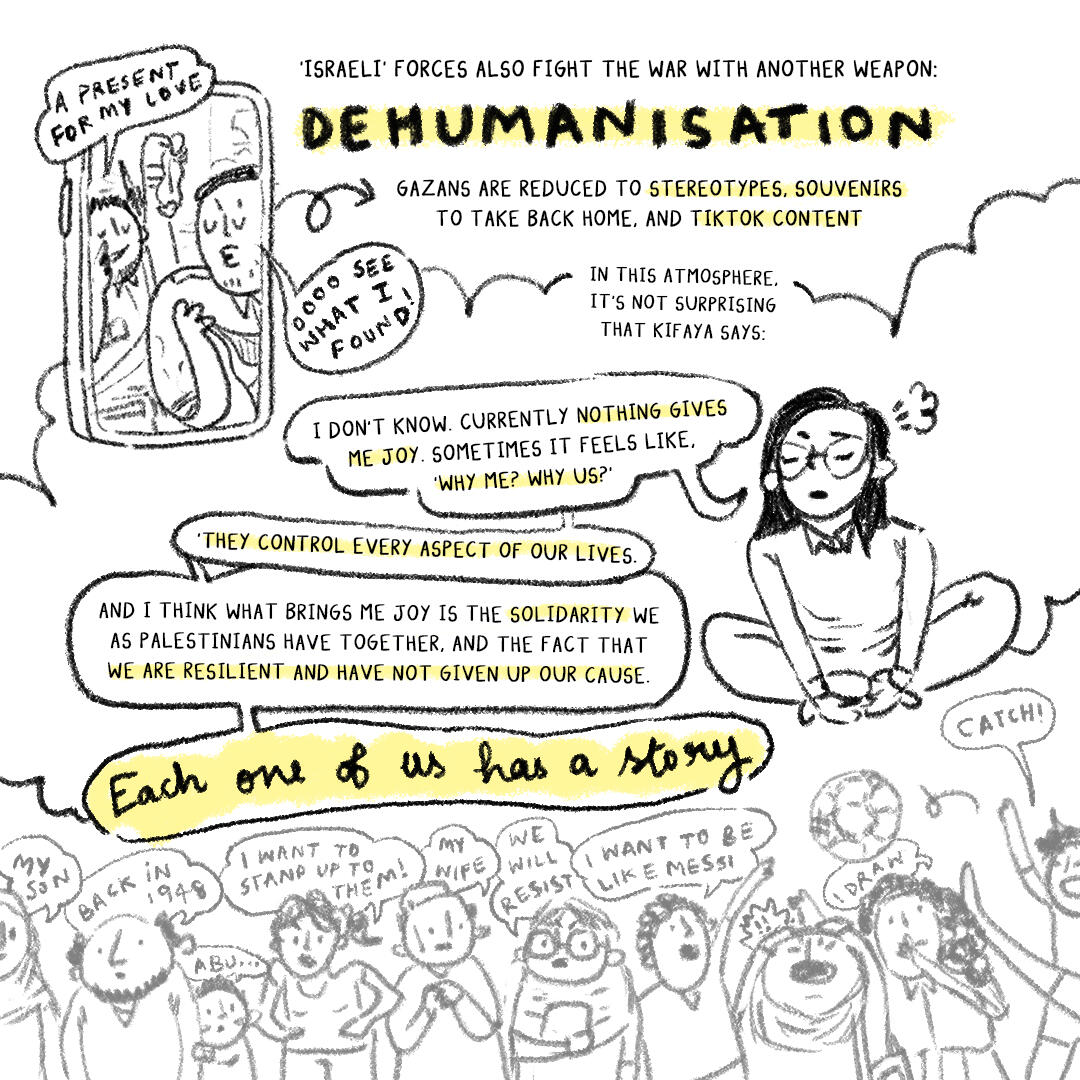 A PRESENT
FOR MY LOVE
'ISRAELI' FORCES ALSO FIGHT THE WAR WITH ANOTHER WEAPON:
DEHUMANISATION
GAZANS ARE REDUCED TO STEREOTYPES, SOUVENIRS
TO TAKE BACK HOME, AND TIKTOK CONTENT
OOOO SEE
WHAT I
FOUND!
IN THIS ATMOSPHERE,
IT'S NOT SURPRISING
THAT KIFAYA SAYS:
I DON'T KNOW. CURRENTLY NOTHING GIVES
ME JOY. SOMETIMES IT FEELS LIKE,
'WHY ME? WHY US?'
'THEY CONTROL EVERY ASPECT OF OUR LIVES.
AND I THINK WHAT BRINGS ME JOY IS THE SOLIDARITY WE
AS PALESTINIANS HAVE TOGETHER, AND THE FACT THAT
WE ARE RESILIENT AND HAVE NOT GIVEN UP OUR CAUSE.
Each one of us has a story
CATCH!
MY
SON
BACK IN
1948
ABU...
I WANT TO
STAND UP TO
THEM!
MY
WIFE
WE
WILL
RESIST
I WANT TO BE
LIKE MESSI
!!!
I DRAW